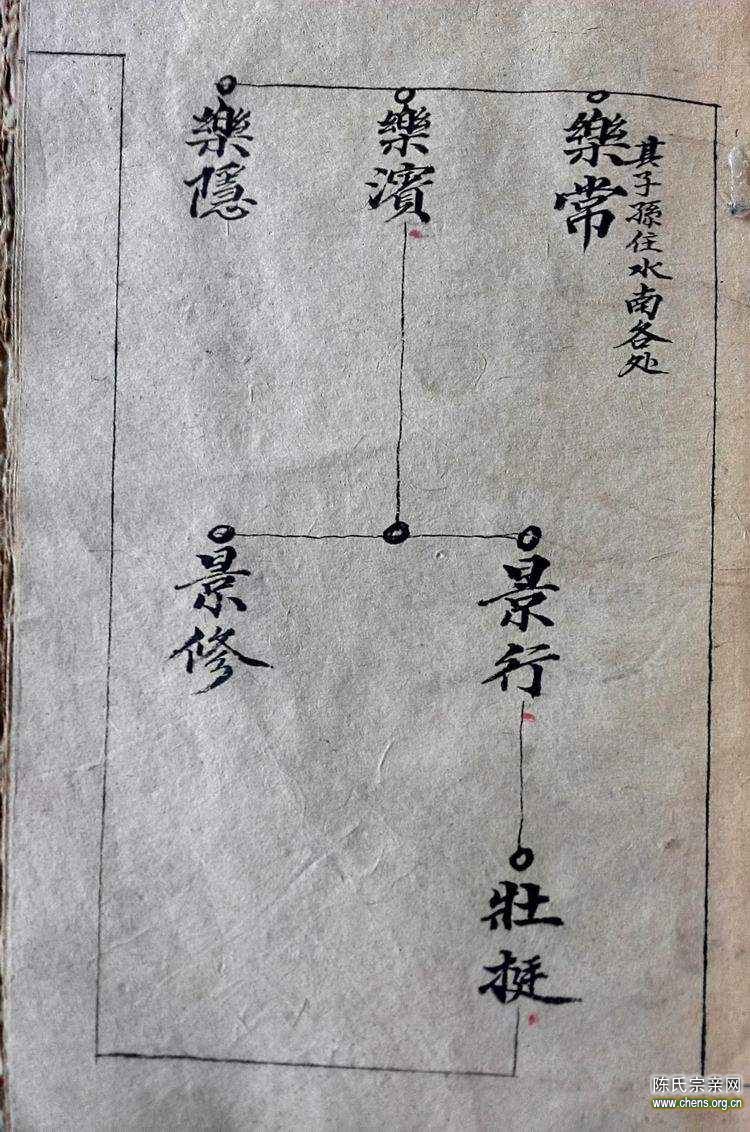 樂常
其子孫住水南各处
樂濱
樂隱
景行
景修
壯挺
陈氏宗亲网
www.chens.org.cn